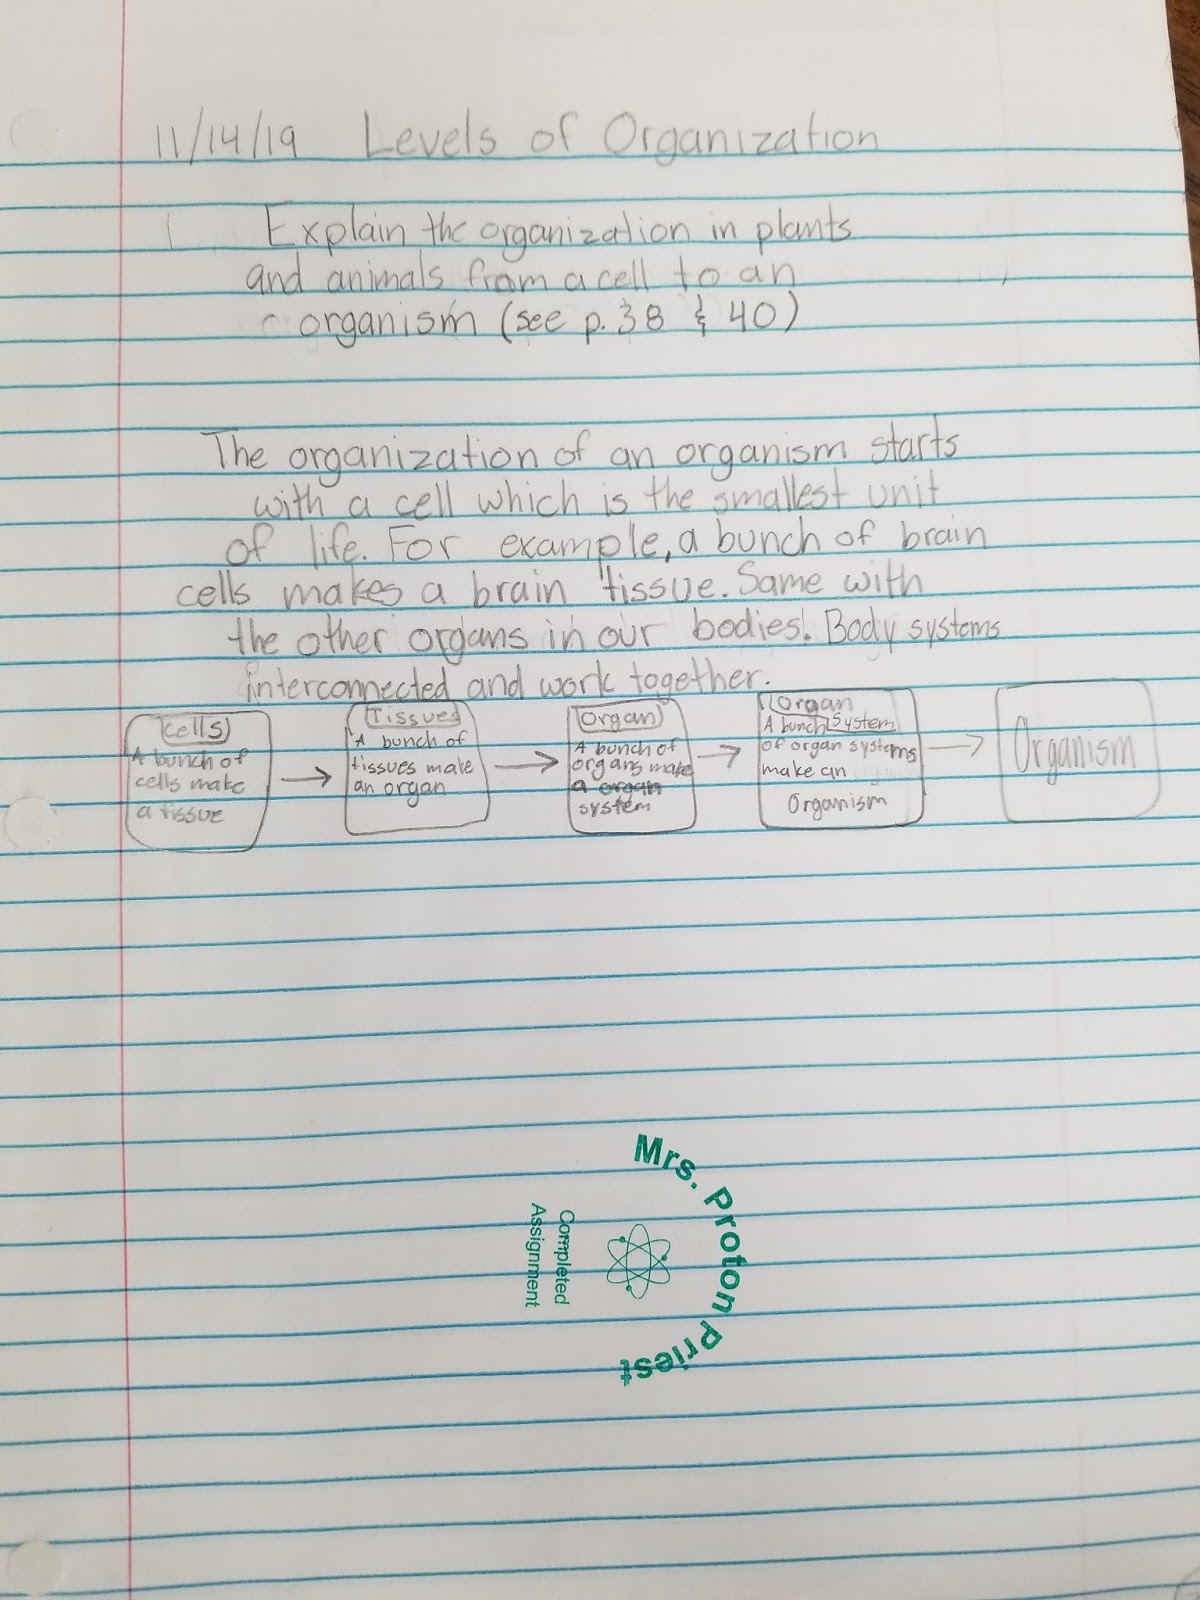 11/14/19 Levels of Organization
Explain the organization in plants
and animals from a cell to an
organism (see p. 38 & 40)
The organization of an organism starts
with a cell which is the smallest unit
of life. For example, a bunch of brain
cells makes a brain tissue. Same with
the other organs in our bodies. Body systems
interconnected and work together.
Cells
A bunch of
cells make
a tissue
Tissues
A bunch of
tissues make
an organ
Organ
A bunch of
organs make
a organ
system
Organ
System
A bunch
of organ systems
make an
Organism
Organism
Mrs. Proton Priest
Completed
Assignment